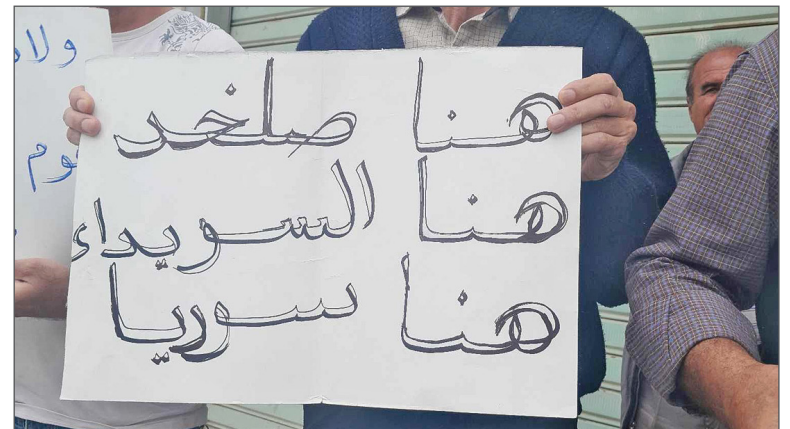 هنا صلخد
هنا السويداء
هنا سوريا